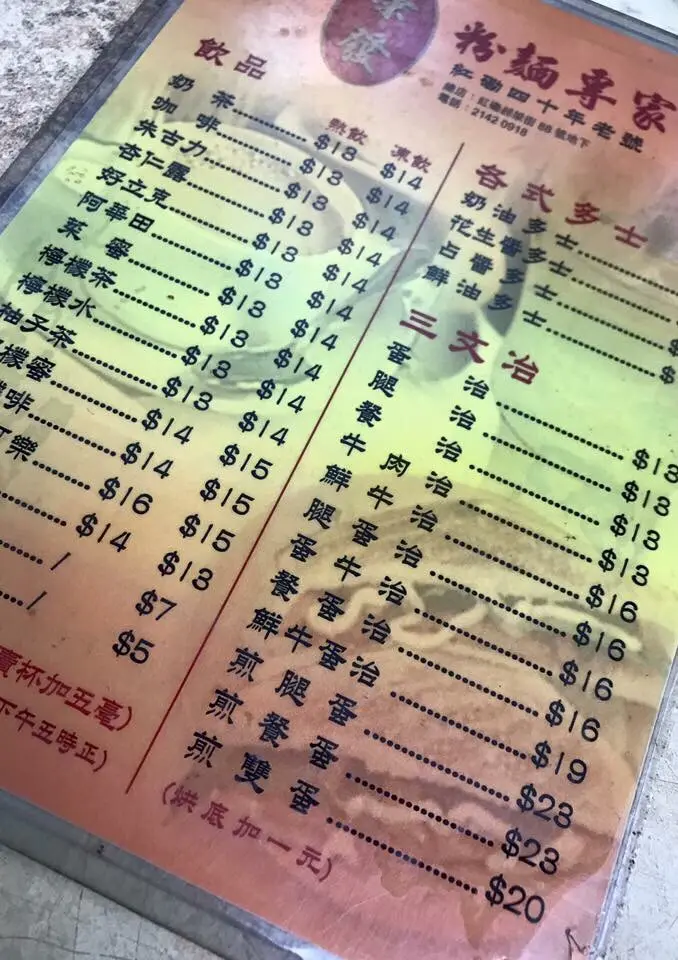 發
粉麵專家
紅磡四十年老號
電話：2142 0918
飲品 熱飲 凍飲
奶茶 $13 $14
咖啡 $13 $14
朱古力 $13 $14
杏仁霜 $13 $14
好立克 $13 $14
阿華田 $13 $14
菜蜜 $13 $14
檸檬茶 $13 $14
檸檬水 $13 $14
柚子茶 $14 $15
檬蜜 $14 $15
啡 $16 $15
樂 $14 $13
/ $7
/ $5
賣杯加五毫)
下午五時正)
各式多士
奶油多士
花生醬多士
占醬多士
鮮油多士
三文治
蛋治 $13
腿治 $13
餐治 $13
牛肉治 $13
鮮牛治 $16
腿蛋治 $16
蛋牛治 $16
餐蛋治 $16
鮮牛蛋治 $19
煎腿蛋 $23
煎餐蛋 $23
煎雙蛋 $20
(烘底加一元)